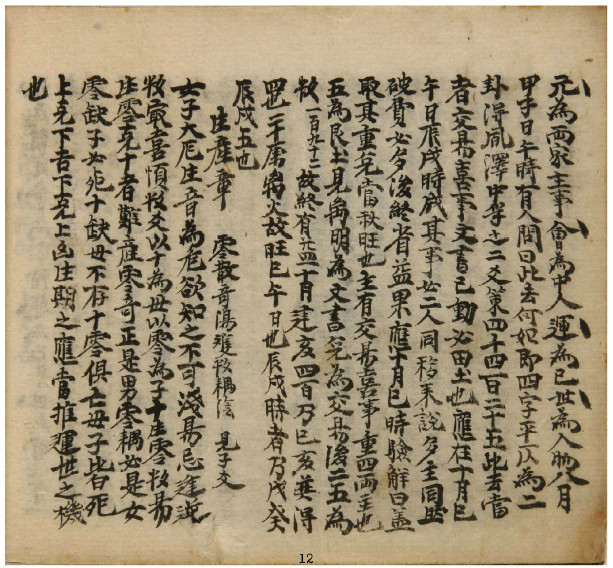 元為兩家主事會為中人運為已世為人助八月
甲子日午時有人問曰此去何如即四字平仄為二
卦得風澤中孚之二爻策四千四百二十五此去當
者交易喜事文書已動必田土也應在十月巳
午日辰戌時成其事必二人同移來說多主同
破費必多後終省益果應十月巳時驗解曰蓋
取其重兌當秋旺也主有交易喜事重四兩主也
五為艮土見離明為文書兌為交易後二五為
故終有益十月建亥四百乃巳亥
罡二千屬火故旺巳午日也辰戌時者乃戊癸
辰戌五也
生產章 零散奇陽雙數耦陰 見子爻
女子大厄生音為危欲知之不可淺易忌
數最喜順數爻以十為母以零為子十生零數易
生零克十者難產零奇正是男零耦必是女
零缺子必死十缺母不存十零俱亡母子皆死
上克下吉下克上凶生期之應當推運世之機
也
12